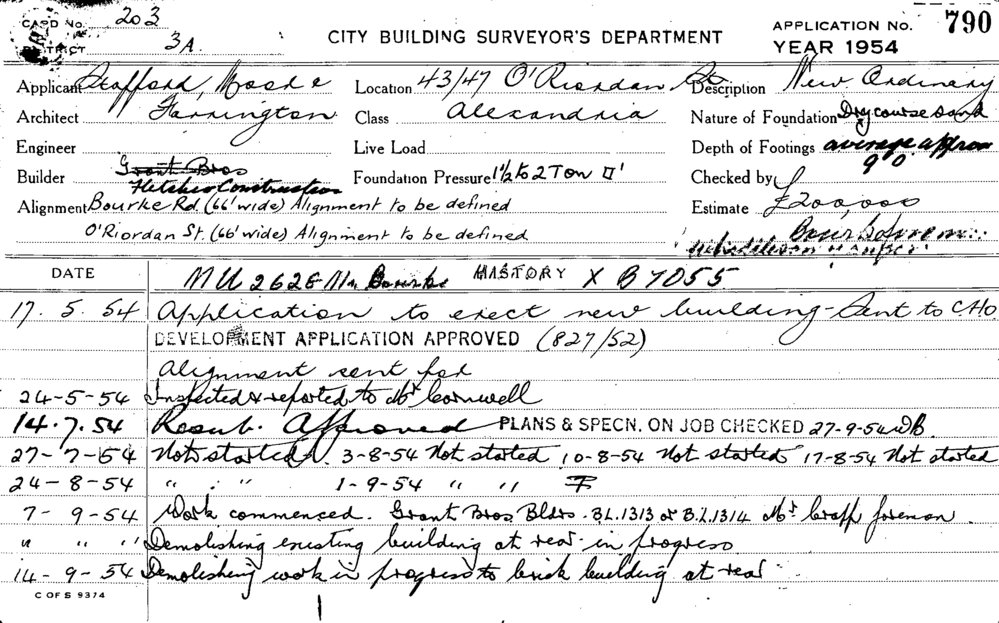 CARD No. 203
DISTRICT 3A
CITY BUILDING SURVEYOR'S DEPARTMENT
APPLICATION No. 790
YEAR 1954
Applicant Stafford, Moor &
Architect Farrington
Engineer
Builder Grant Bros
Fletcher Construction
Location 43/47 O'Riordan St
Class Alexandria
Live Load
Foundation Pressure 1½ to 2 Ton □'
Description New Ordinary
Nature of Foundation Dry course sand
Depth of Footings average approx
9'0"
Checked by
Estimate £200,000
Alignment Bourke Rd. (66' wide) Alignment to be defined
O'Riordan St. (66' wide) Alignment to be defined
DATE
HISTORY
MU 2628 Mr Bourke X B7055
17. 5. 54 Application to erect new building - Sent to CHO
DEVELOPMENT APPLICATION APPROVED (827/52)
Alignment sent for
24-5-54 Inspected & reported to Mr Cornwell
14.7.54 Resub. Approved PLANS & SPECN. ON JOB CHECKED 27-9-54 WB.
27-7-54 Not started. 3-8-54 Not started 10-8-54 Not started 17-8-54 Not started
24-8-54 " " 1-9-54 " "
7-9-54 Work commenced. Grant Bros. Bldrs. B.L. 1313 or B.L. 1314 Mr Crapp foreman.
" " " Demolishing existing building at rear in progress
14-9-54 Demolishing work in progress to brick building at rear
C OF S 9374